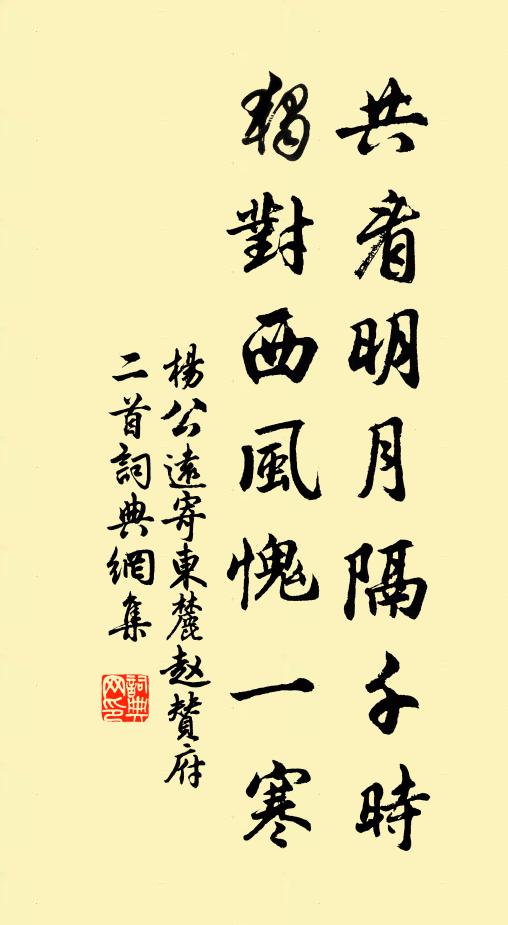 共看明月隔千時
獨對西風愧一寒
楊公遠寄東麓赵贊府
二首詞典網集
詞典网印